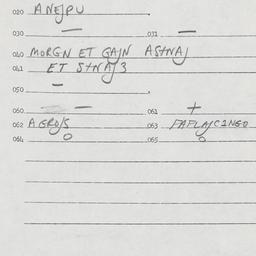 020 ANEJPU
030 — 031 —
040 MORGN ET GAJN ASTNAJ
041 ET STNAJ3
050 —
060 — 061 +
062 AGROJS 063
064 O 065 O